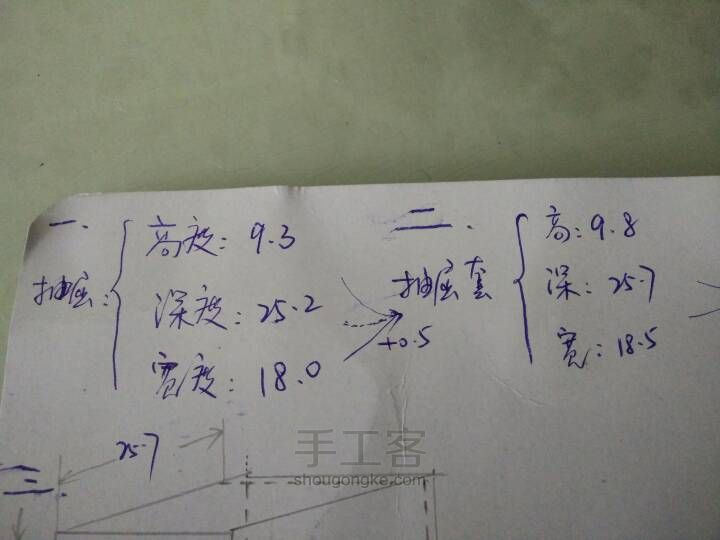 一.
抽屉:
高度: 9.3
深度: 25.2
宽度: 18.0
+0.5
二.
抽屉套
高: 9.8
深: 25.7
宽: 18.5
三.
25.7
手工客
shougongke.com